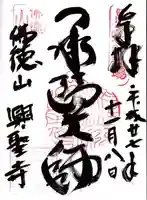 奉拝
平成廿七年
十一月八日
承陽大師
佛徳山
興聖寺